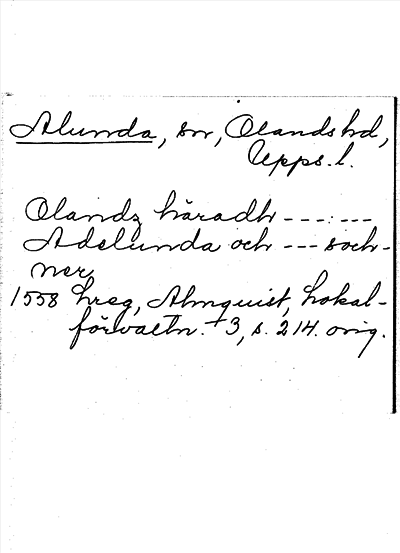 Alunda, sn, Olands hd,
Upps. l.
Olandz häradh ---:---
Adelunda och --- soch-
ner
1558 hreg, Almquist, Lokal-
förvaltn. 3, s. 214. orig.